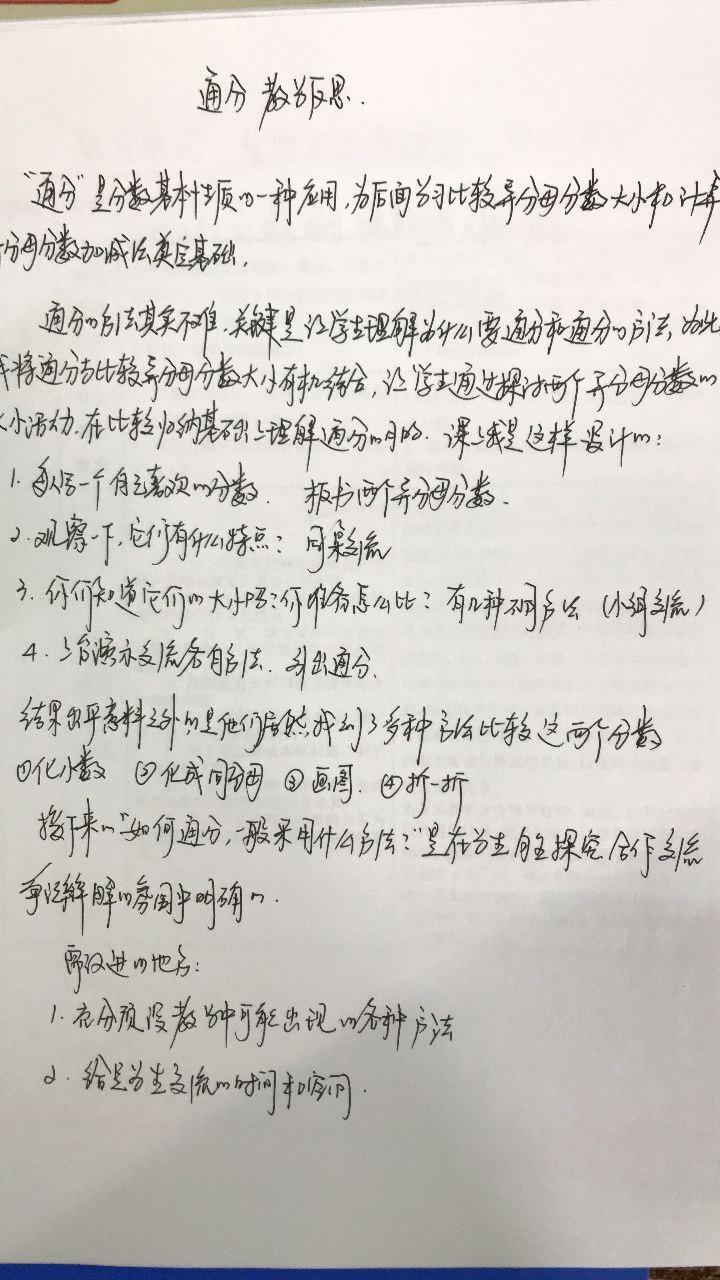 通分 教学反思.
"通分"是分数基本性质的一种应用,为后面学习比较异分母分数大小和计算
分母分数加减法奠定基础.
通分的方法其实不难,关键是让学生理解为什么要通分和通分的方法,为此
我将通分与比较异分母分数大小有机结合,让学生通过探讨两个异分母分数的
大小活动,在比较归纳基础上理解通分的目的. 课上我是这样设计的:
1. 每人写一个自己喜欢的分数. 板书两个异分母分数.
2. 观察一下,它们有什么特点? 同桌交流
3. 你们知道它们的大小吗?你准备怎么比? 有几种不同方法 (小组交流)
4. 上台演示交流各自方法. 引出通分.
结果出乎意料之外的是他们居然找到了多种方法比较这两个分数
①化小数 ②化成同分母 ③画图. ④折一折
接下来的"如何通分,一般采用什么方法?"是在学生自主探究合作交流
争论辩解的氛围中明确的.
需改进的地方:
1. 充分预设教学中可能出现的各种方法
2. 给足学生交流的时间和空间.